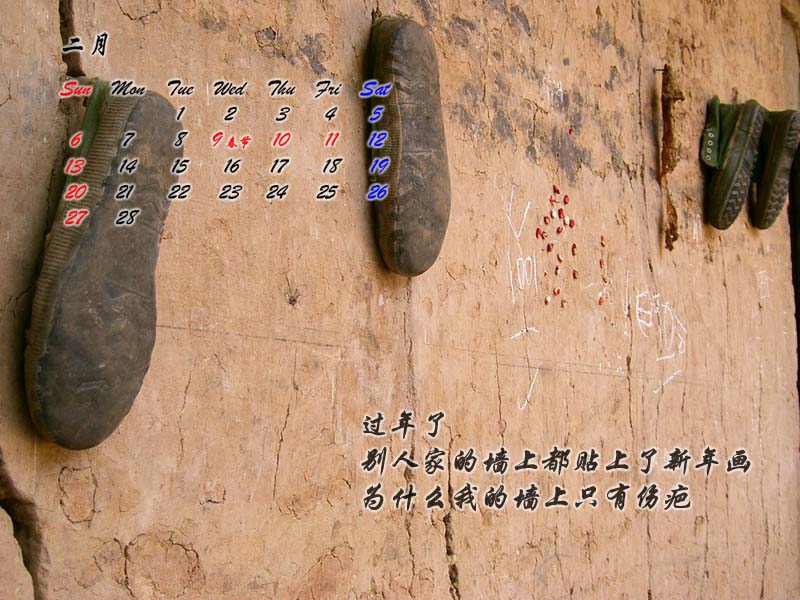 二月
Sun Mon Tue Wed Thu Fri Sat
1 2 3 4 5
6 7 8 9春节 10 11 12
13 14 15 16 17 18 19
20 21 22 23 24 25 26
27 28
过年了
别人家的墙上都贴上了新年画
为什么我的墙上只有伤疤